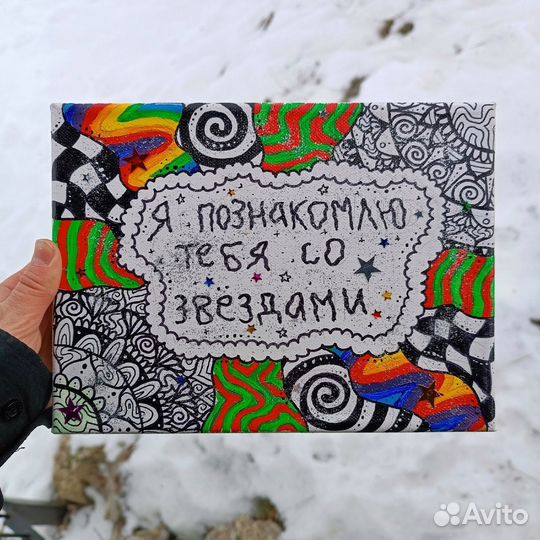 Я ПОЗНАКОМЛЮ
ТЕБЯ СО
ЗВЁЗДАМИ
Avito